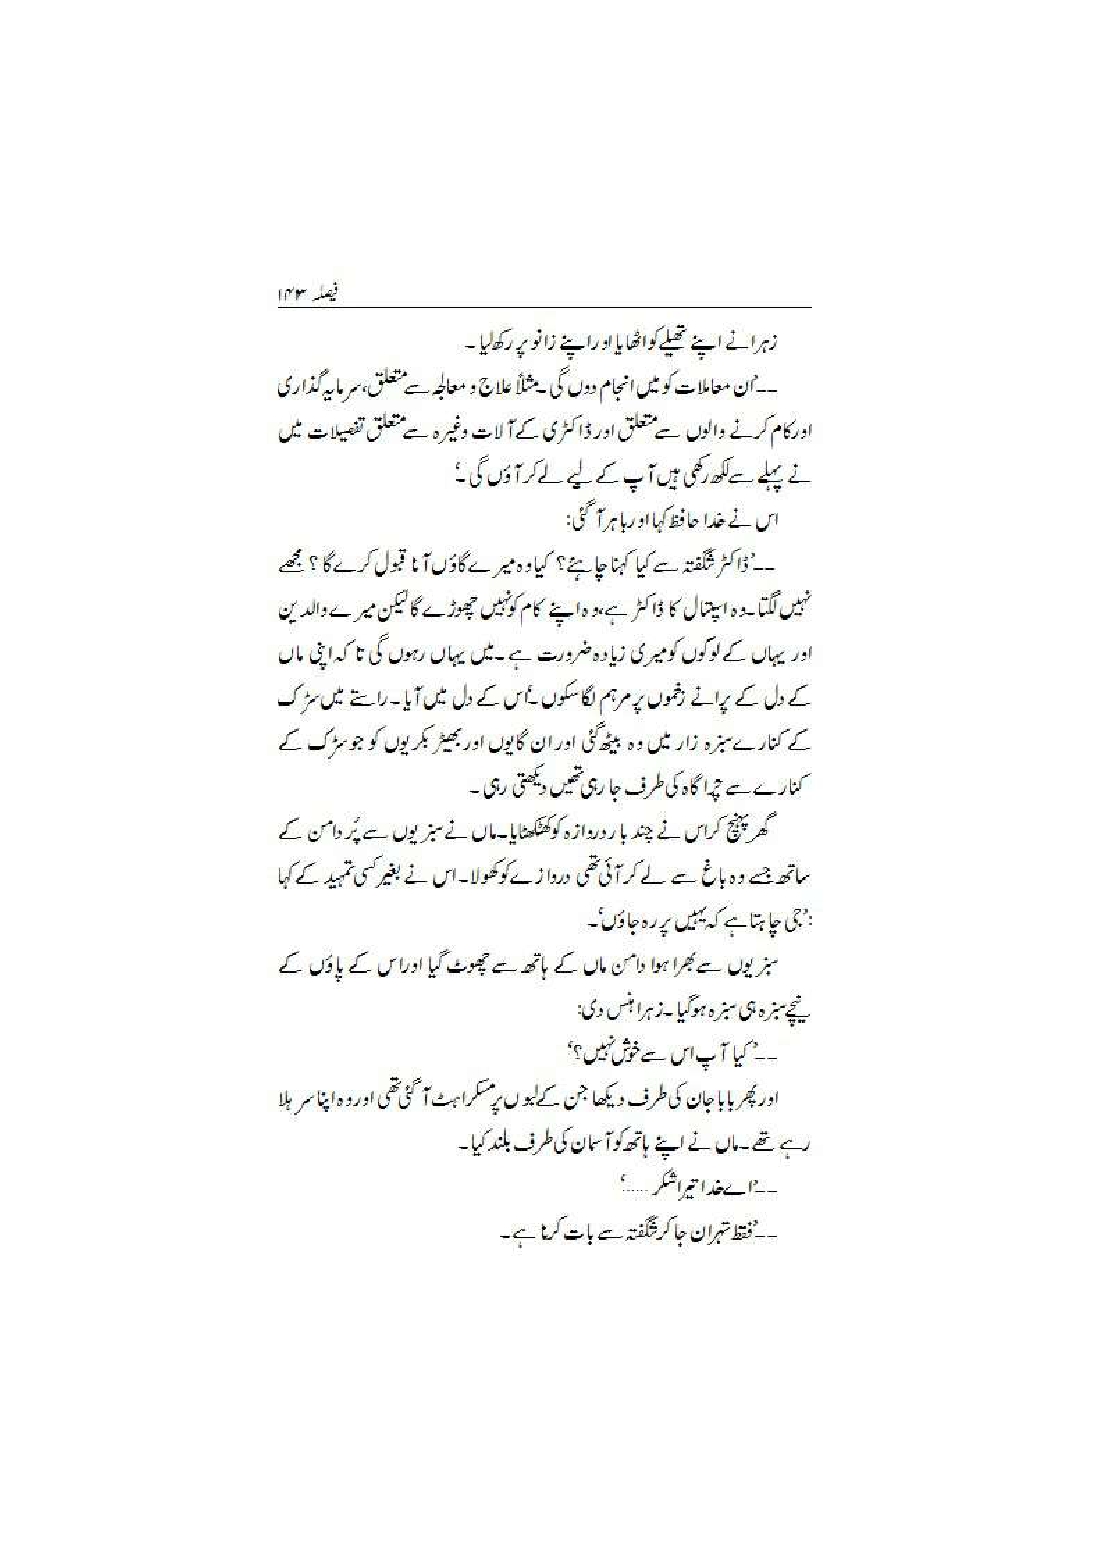 فیصلہ ۱۴۳
زہرا نے اپنے تھیلے کو اٹھایا اور اپنے زانو پر رکھ لیا ۔
--’ان معاملات کو میں انجام دوں گی ۔مثلاً علاج و معالجہ سے متعلق، سرمایہ گذاری
اور کام کرنے والوں سے متعلق اور ڈاکٹری کے آلات وغیرہ سے متعلق تفصیلات میں
نے پہلے سے لکھ رکھی ہیں آپ کے لیے لے کر آؤں گی ۔‘
اس نے خدا حافظ کہا اور باہر آ گئی:
--’ڈاکٹر شگفتہ سے کیا کہنا چاہئے؟ کیا وہ میرے گاؤں آنا قبول کرے گا ؟ مجھے
نہیں لگتا۔وہ اسپتال کا ڈاکٹر ہے،وہ اپنے کام کو نہیں چھوڑے گا لیکن میرے والدین
اور یہاں کے لوگوں کو میری زیادہ ضرورت ہے ۔میں یہاں رہوں گی تا کہ اپنی ماں
کے دل کے پرانے زخموں پر مرہم لگا سکوں ۔‘اس کے دل میں آیا ۔ راستے میں سڑک
کے کنارے سبزہ زار میں وہ بیٹھ گئی اور ان گایوں اور بھیڑ بکریوں کو جو سڑک کے
کنارے سے چراگاہ کی طرف جا رہی تھیں دیکھتی رہی ۔
گھر پہنچ کر اس نے چند بار دروازہ کو کھٹکھٹایا۔ماں نے سبزیوں سے پُر دامن کے
ساتھ جسے وہ باغ سے لے کر آئی تھی دروازے کو کھولا۔اس نے بغیر کسی تمہید کے کہا
:’جی چاہتا ہے کہ یہیں پر رہ جاؤں‘۔
سبزیوں سے بھرا ہوا دامن ماں کے ہاتھ سے چھوٹ گیا اور اس کے پاؤں کے
نیچے سبزہ ہی سبزہ ہو گیا ۔زہرا ہنس دی:
--’ کیا آپ اس سے خوش نہیں؟‘
اور پھر بابا جان کی طرف دیکھا جن کے لبوں پر مسکراہٹ آ گئی تھی اور وہ اپنا سر ہلا
رہے تھے ۔ماں نے اپنے ہاتھ کو آسمان کی طرف بلند کیا ۔
--’اے خدا تیرا شکر ......‘
--’فقط تہران جا کر شگفتہ سے بات کرنا ہے ۔